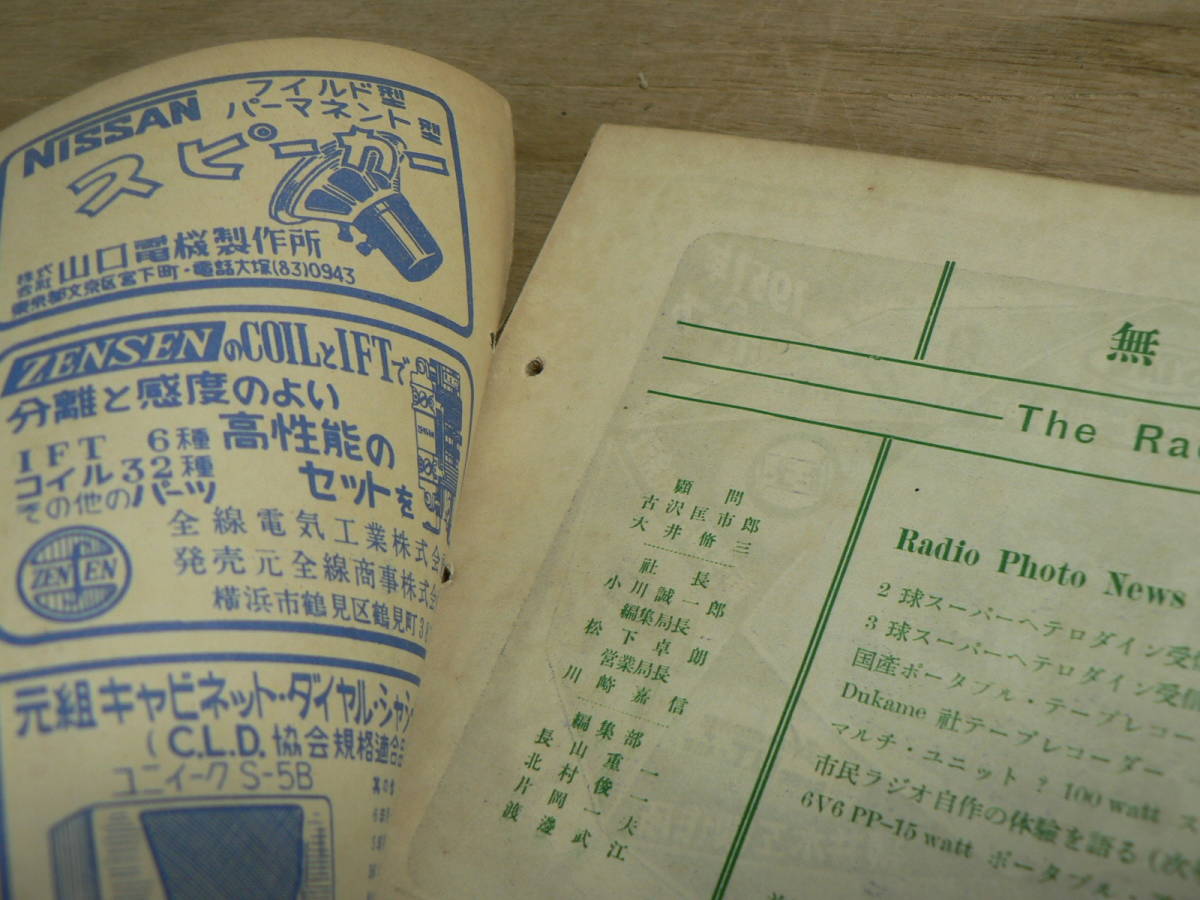 NISSAN
フイルド型
パーマネント型
スピーカー
株式会社 山口電機製作所
東京都文京区宮下町・電話大塚(83)0943
ZENSENのCOILとIFTで
分離と感度のよい
高性能の
セットを
IFT 6種
コイル32種
その他のパーツ
全線電気工業株式会
発売元全線商事株式
横浜市鶴見区鶴見町3
ZENSEN
元組キャビネット・ダイヤル・シャシ
(C.L.D.協会規格適合品
ユニィーク S-5B
無
The Ra
顧問
古沢匡市郎
大井脩三
社長
小川誠一郎
編集局長
松下卓朗
営業局長
川崎嘉信
編集部
長山重一
北村俊一
片岡一夫
渡邊武江
Radio Photo News
2球スーパーヘテロダイン受信
3球スーパーヘテロダイン受信
国産ポータブル・テープレコー
Dukame 社テープレコーダー
マルチ・ユニット ? 100 watt ス
市民ラジオ自作の体験を語る (次
6V6 PP-15 watt ポータブル・